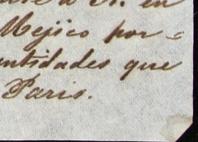 á N. en
Mejico por=
ntidades que
Paris.